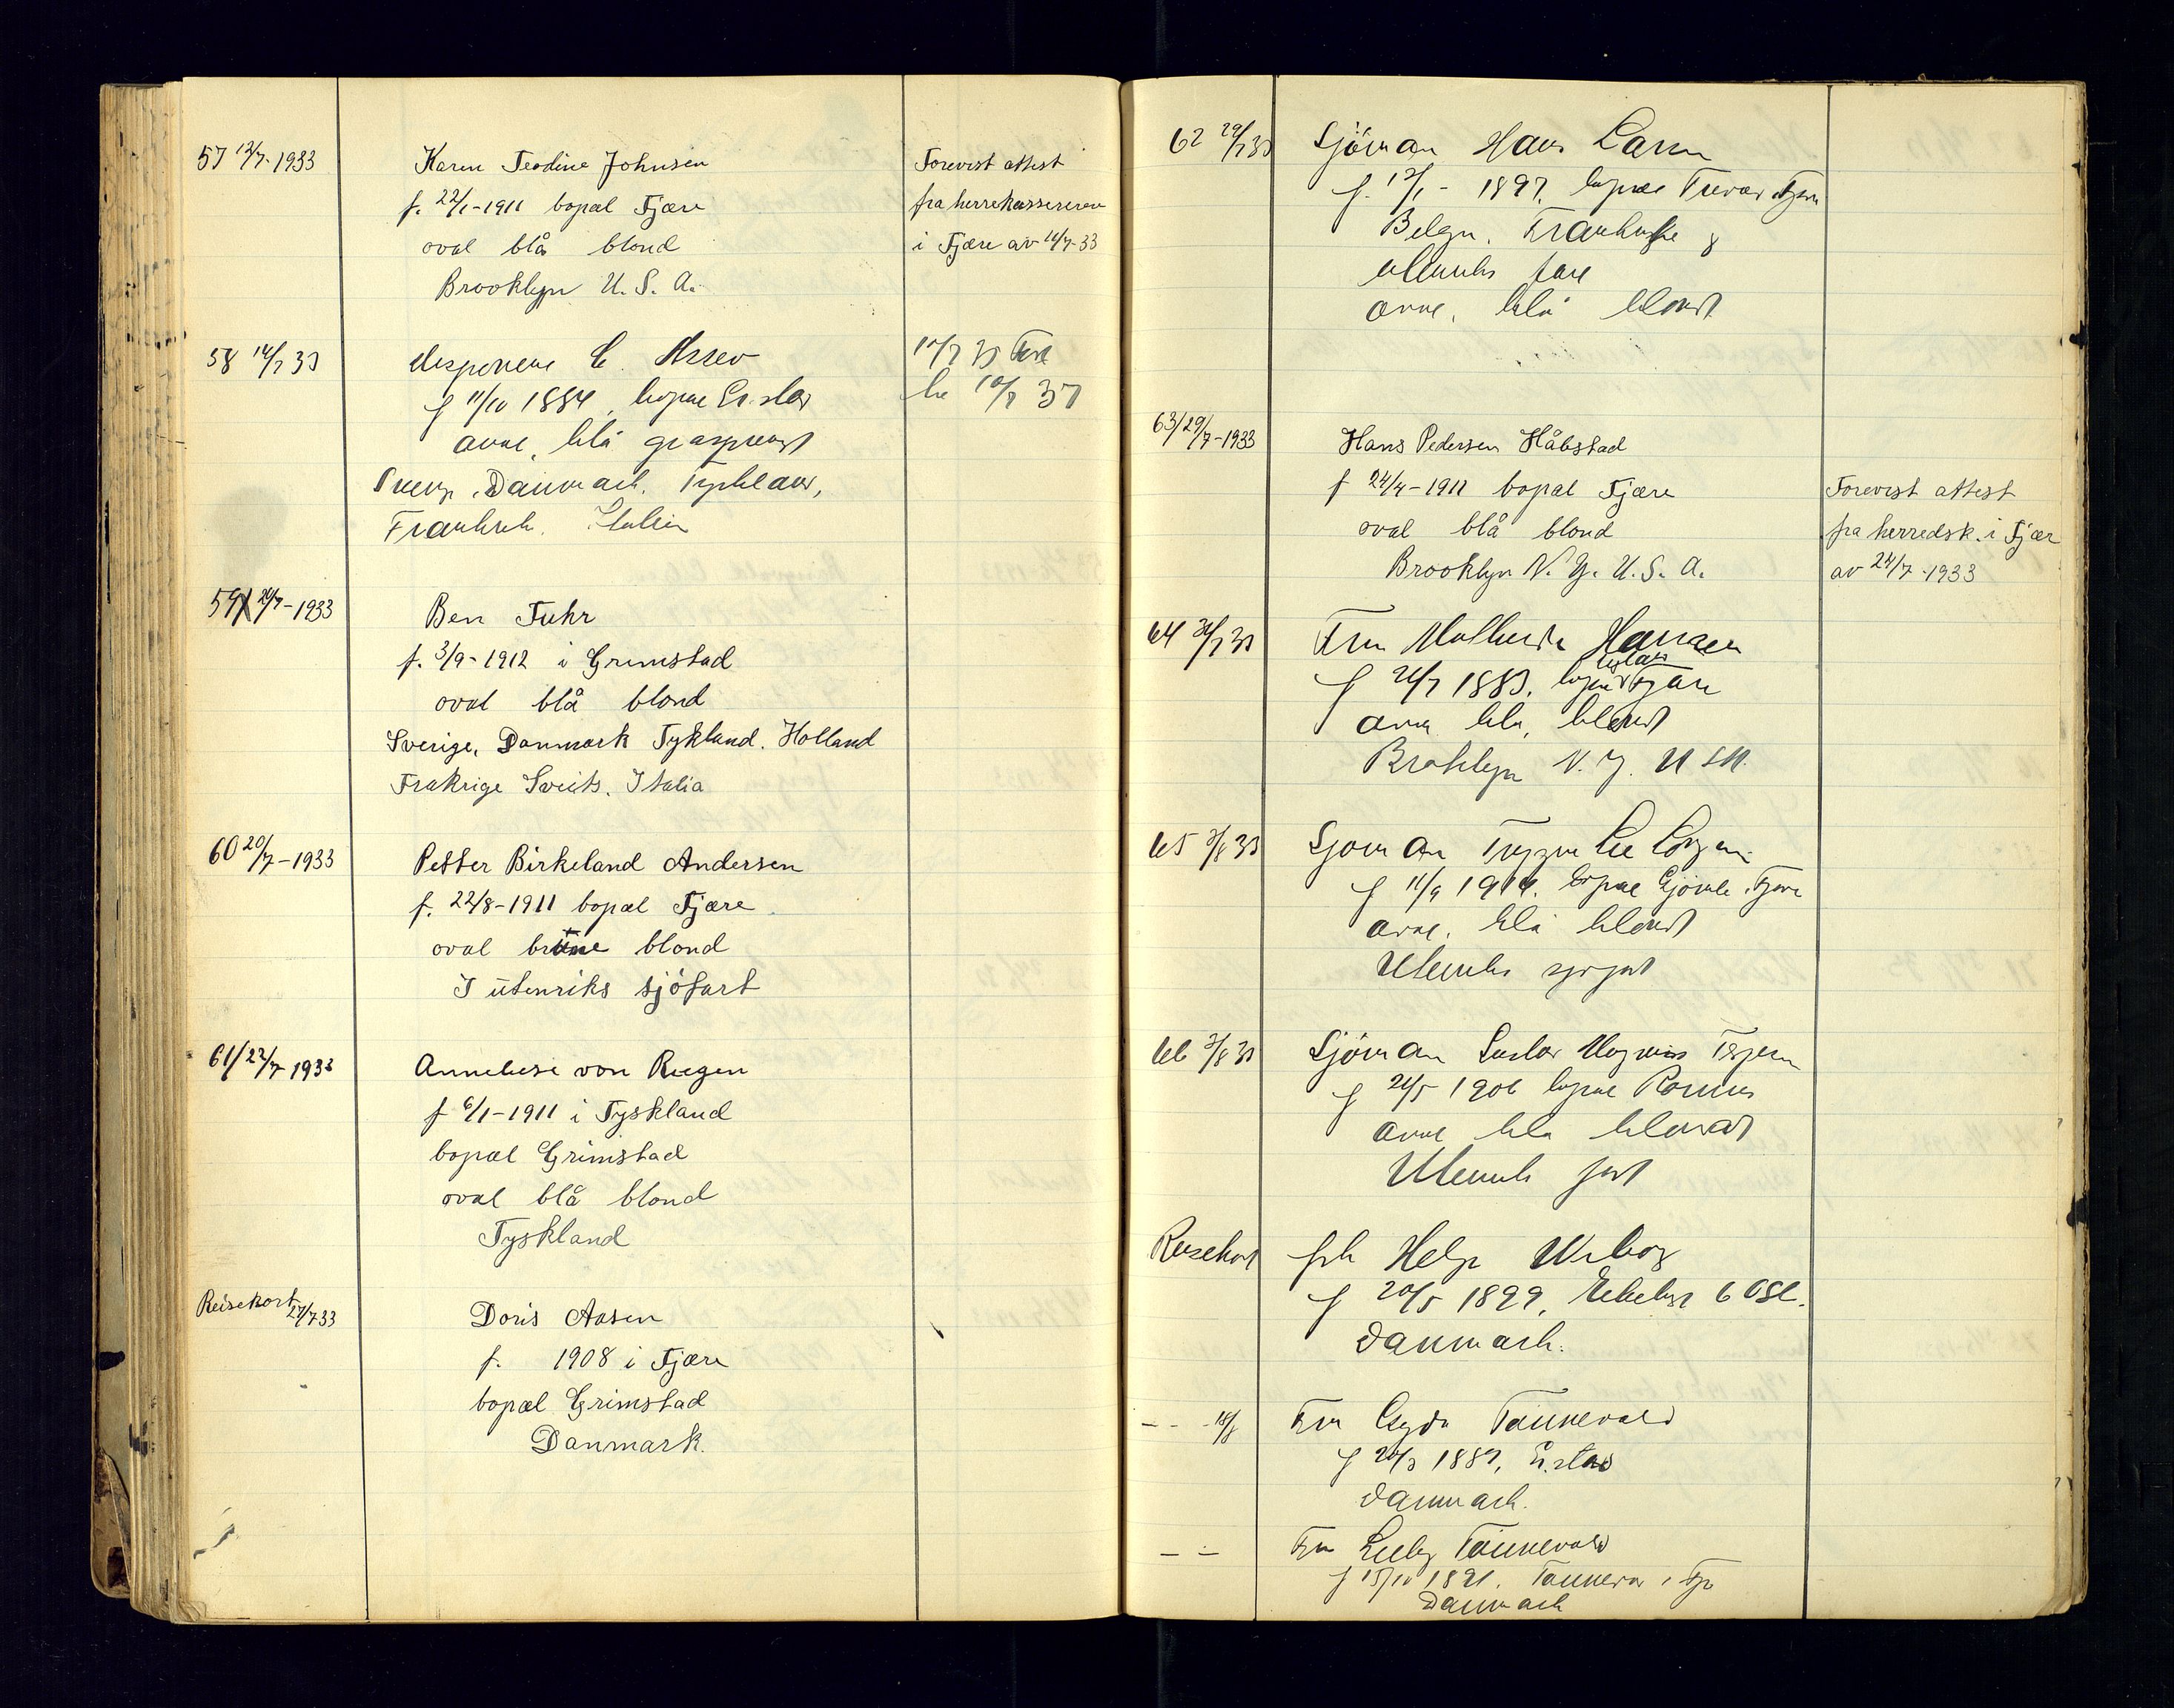 57 12/7-1933
Karen Teodine Johnsen
f. 22/1-1911 bopæl Fjære
oval blå blond
Brooklyn U. S. A.
Forevist attest
fra herrekassereren
i Fjære av 11/7-33
58 14/7 33
disponent C.
f 11/10 1884, bopæl Gr.stad
oval, blå gråsprengt
Sverige, Danmark, Tyskland,
Frankrik, Italien
59 20/7-1933
Ben Fuhr
f. 3/9-1912 i Grimstad
oval blå blond
Sverige, Danmark Tykland. Holland
Frakrige Sveits. Italia
60 20/7-1933
Petter Birkeland Andersen
f. 22/8-1911 bopæl Fjære
oval brune blond
I utenriks sjöfart
61/22/7 1933
Anneliese von Riegen
f 6/1-1911 i Tyskland
bopæl Grimstad
oval blå blond
Tyskland
Reisekort 27/7 33
Doris Aasen
f. 1908 i Fjære
bopæl Grimstad
Danmark.
62 29/7 33
Sjöman Hans Larsen
f. 12/1- 1897, bopæl Fjære
Belgien, Frankrike &
utenriks fart
oval, blå blond
63/29/7-1933
Hans Pedersen Håbstad
f 24/4-1911 bopæl Fjære
oval blå blond
Brooklyn N. Y. U. S. A.
Forevist attest
fra herredsk. i Fjær
av 24/7-1933
64 31/7 33
Fru Mathilde Hansen
f 21/7 1883, bopæl Fjære
oval blå, blond
Brooklyn N. Y. U S A.
65 3/8 33
Sjöman Trygve
f 11/9 1914. bopæl Fjære
oval, blå blond
Utenriks sjöfart
66 3/8 33
Sjöman Gustav Magnus
f 21/5 1906 bopæl
oval blå blond
Utenriks fart
Reisekort
frk Helga
f 20/5 1899,
Danmark.
- - -18/8
Fru Gyda Tønnevold
f 20/3 1887, Gr.stad
Danmark.
- -
Fru Lilly Tønnevold
f 15/10 1891. i Fjære
Danmark